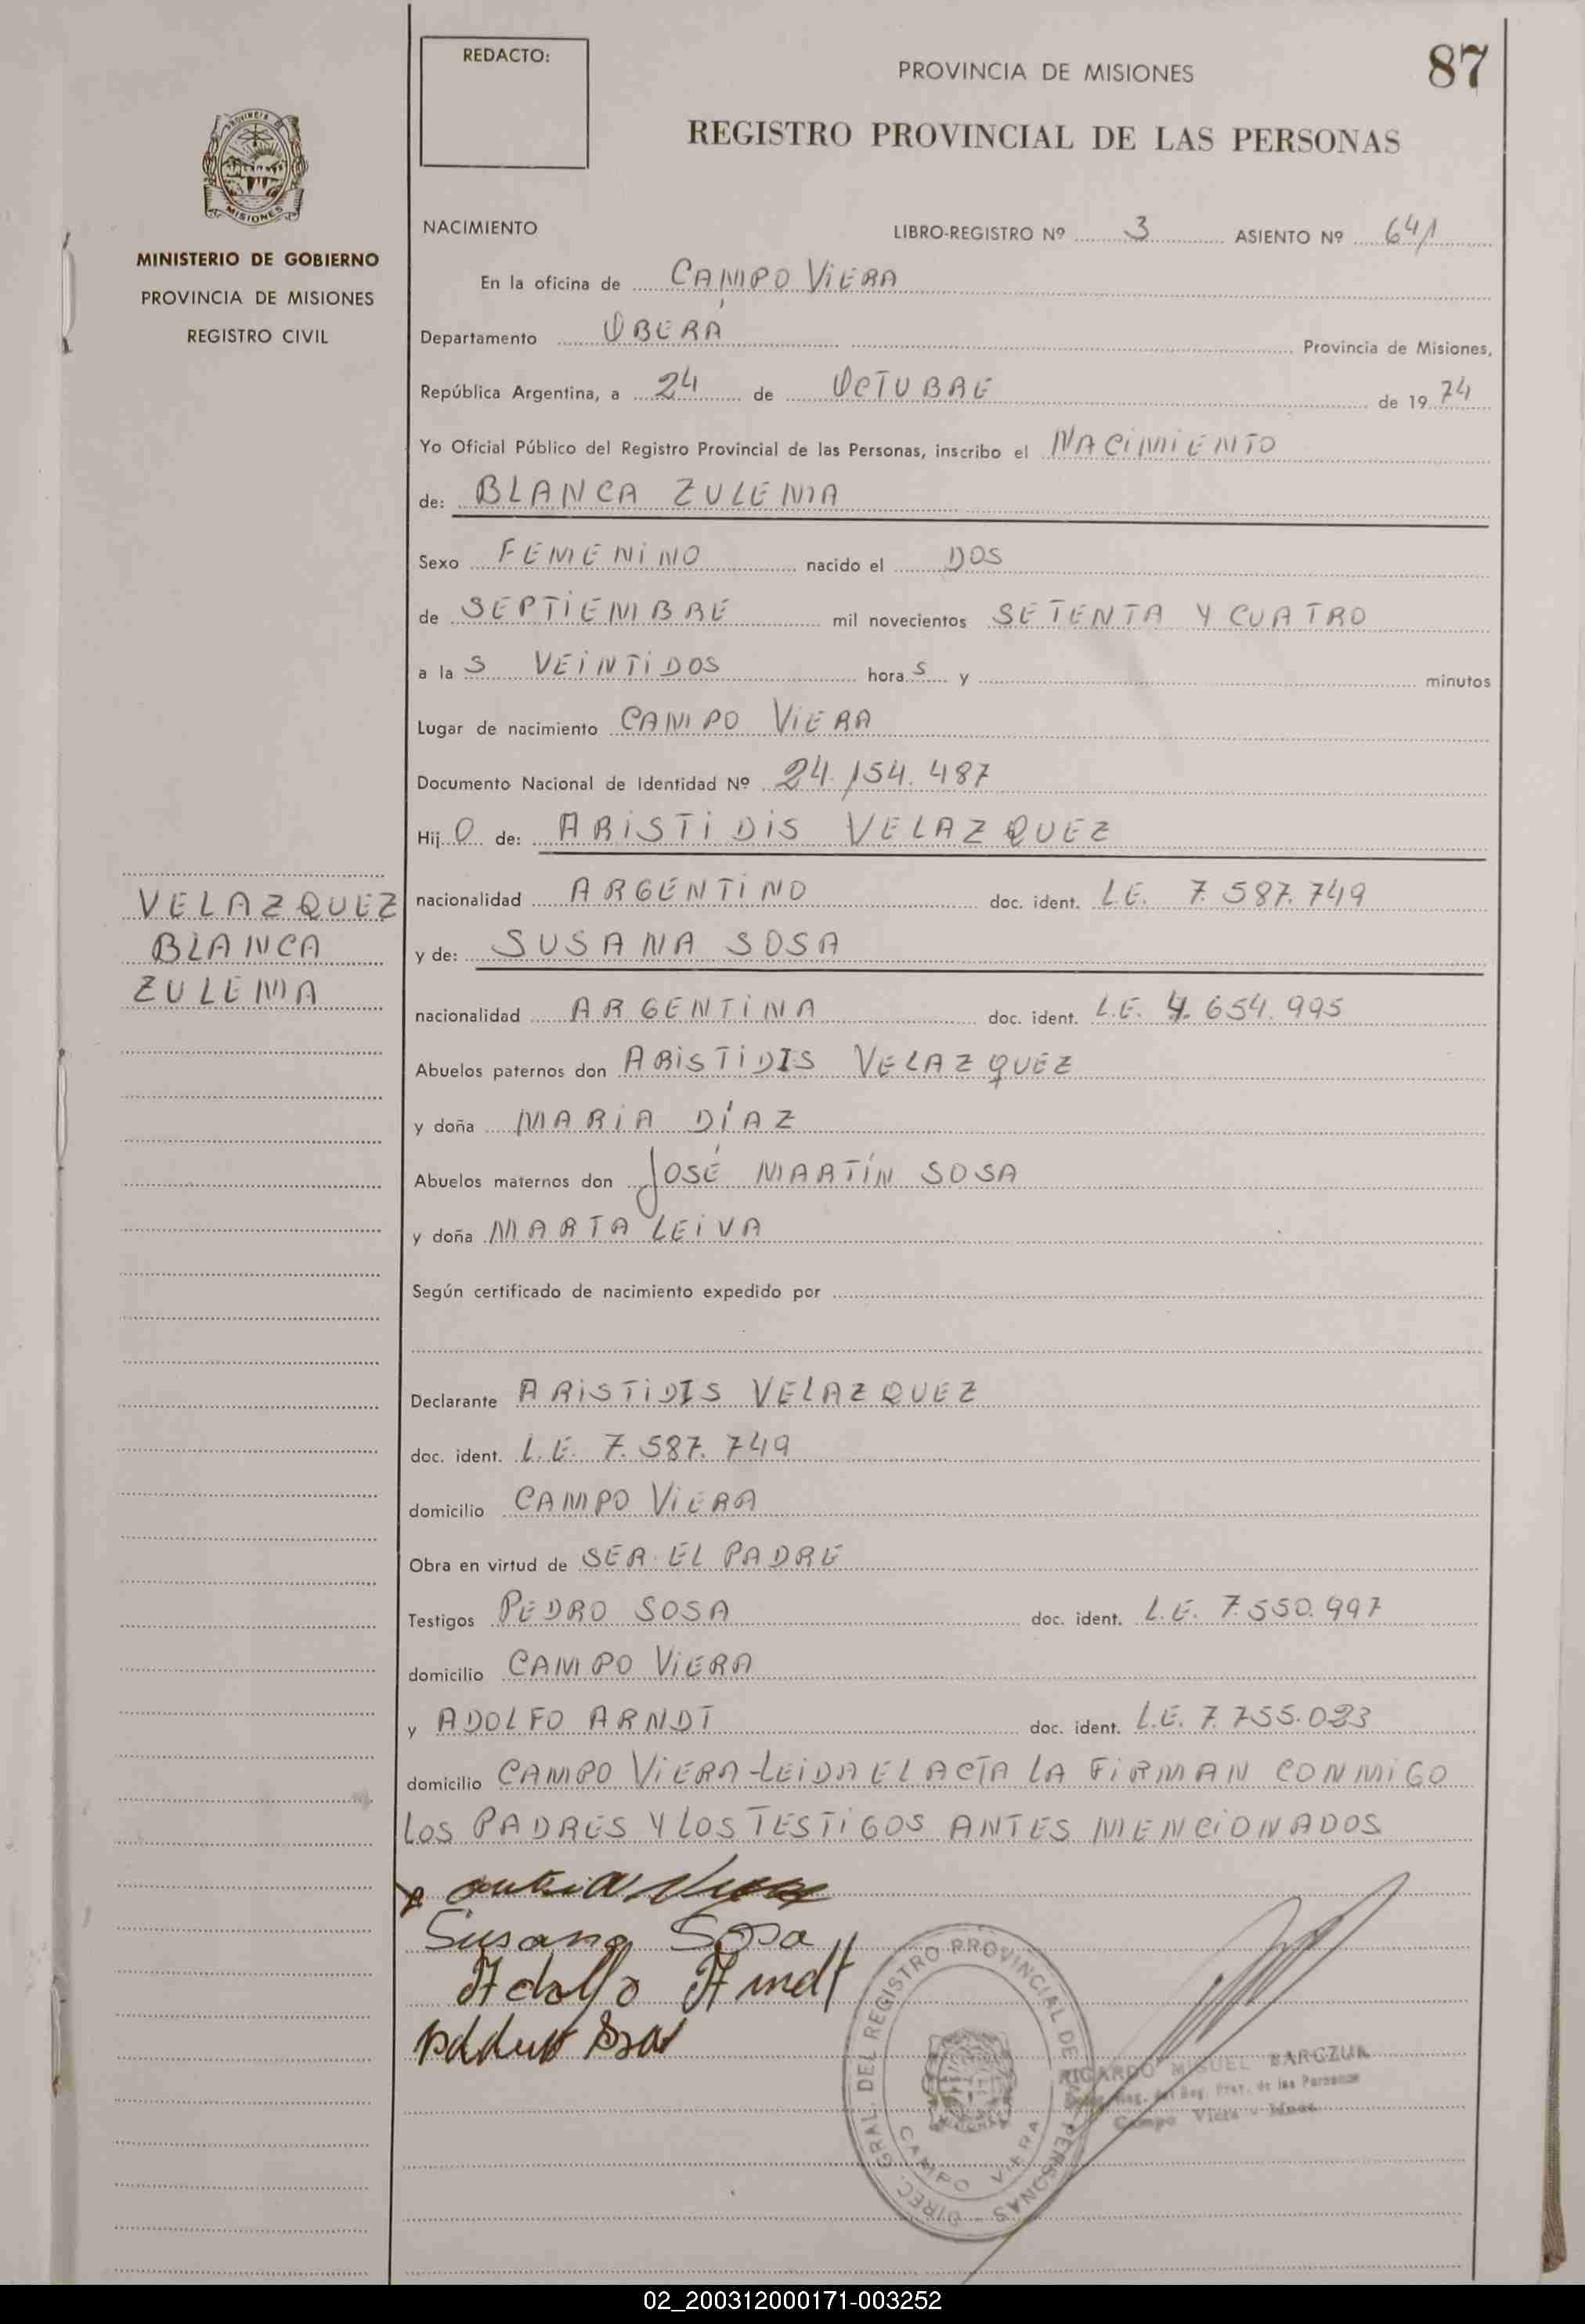 REDACTO:
PROVINCIA DE MISIONES
87
REGISTRO PROVINCIAL DE LAS PERSONAS
PROVINCIA DE
MISIONES
MINISTERIO DE GOBIERNO
PROVINCIA DE MISIONES
REGISTRO CIVIL
NACIMIENTO
LIBRO-REGISTRO Nº 3 ASIENTO Nº 641
En la oficina de CAMPO VIERA
Departamento OBERÁ Provincia de Misiones,
República Argentina, a 24 de OCTUBRE de 19 74
Yo Oficial Público del Registro Provincial de las Personas, inscribo el NACIMIENTO
de: BLANCA ZULEMA
Sexo FEMENINO nacido el DOS
de SEPTIEMBRE mil novecientos SETENTA Y CUATRO
a la S VEINTIDOS hora S y minutos
Lugar de nacimiento CAMPO VIERA
Documento Nacional de Identidad Nº 24.154.487
Hij O de: ARISTIDIS VELAZQUEZ
nacionalidad ARGENTINO doc. ident. L.E. 7.587.749
y de: SUSANA SOSA
nacionalidad ARGENTINA doc. ident. L.E. 4.654.995
Abuelos paternos don ARISTIDIS VELAZQUEZ
y doña MARIA DÍAZ
Abuelos maternos don JOSÉ MARTÍN SOSA
y doña MARTA LEIVA
Según certificado de nacimiento expedido por
Declarante ARISTIDIS VELAZQUEZ
doc. ident. L.E. 7.587.749
domicilio CAMPO VIERA
Obra en virtud de SER EL PADRE
Testigos PEDRO SOSA doc. ident. L.E. 7.550.997
domicilio CAMPO VIERA
y ADOLFO ARNDT doc. ident. L.E. 7.755.023
domicilio CAMPO VIERA-LEIDA EL ACTA LA FIRMAN CONMIGO
LOS PADRES Y LOS TESTIGOS ANTES MENCIONADOS
VELAZQUEZ
BLANCA
ZULEMA
Susana Sosa
Adolfo Arndt
DIREC. GRAL. DEL REGISTRO PROVINCIAL DE LAS PERSONAS
CAMPO VIERA
RICARDO MIGUEL BARCZUK
Reg. Prov. de las Personas
Campo Viera - Mnes.
02_200312000171-003252